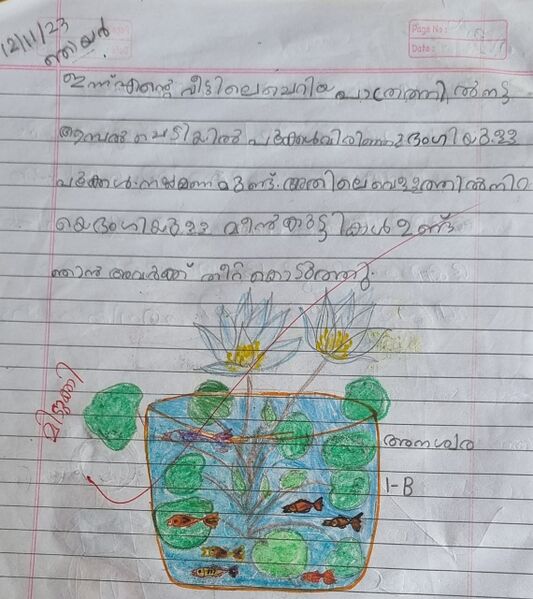 12/11/23
ഞായർ
Page No :
Date :
ഇന്ന് എന്റെ വീട്ടിലെ ചെറിയ പാത്രത്തിൽ നട്ട
ആമ്പൽ ചെടിയിൽ പൂക്കൾ വിരിഞ്ഞു ഭംഗിയുള്ള
പൂക്കൾ നല്ല മണമുണ്ട്. അതിലെ വെള്ളത്തിൽ നിറ
യെ ഭംഗിയുള്ള മീൻ കുട്ടികൾ ഉണ്ട്
ഞാൻ അവർക്ക് തീറ്റ കൊടുത്തു.
മിടുക്കി
അനശ്വര
1-B